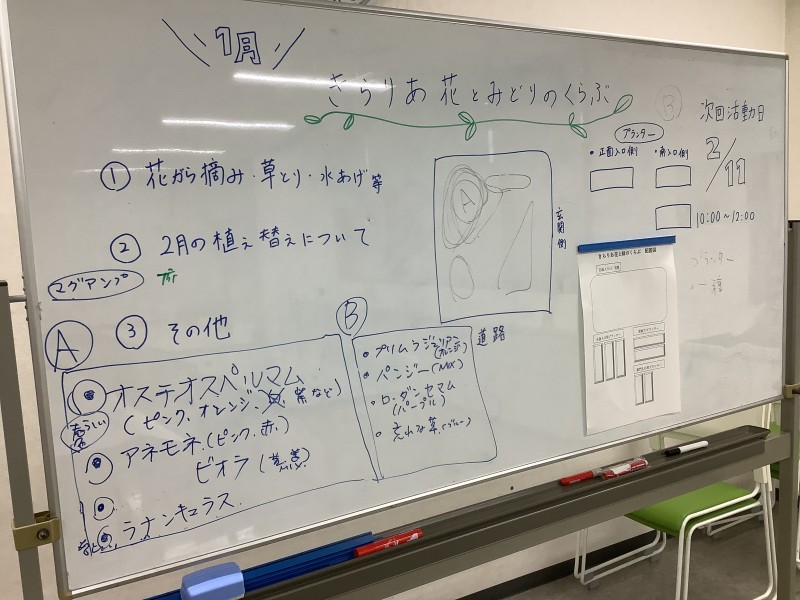 1月
きらりあ花とみどりのくらぶ
① 花がら摘み・草とり・水あげ等
② 2月の植え替えについて
マグアンプ
③ その他
A
オステオスペルマム
(ピンク、オレンジ、紫など)
春らしい
アネモネ(ピンク、赤、)
ビオラ(黄、
ラナンキュラス
B
・プリムラジュリアン
(オレンジ)
・パンジー(MIX)
(パープル)
・忘れな草(ブルー)
A
玄関側
道路
プランター
・正面入口側
・南入口側
次回活動日
2/11
10:00~12:00
プランター
きらりあ花と緑のくらぶ 配置図